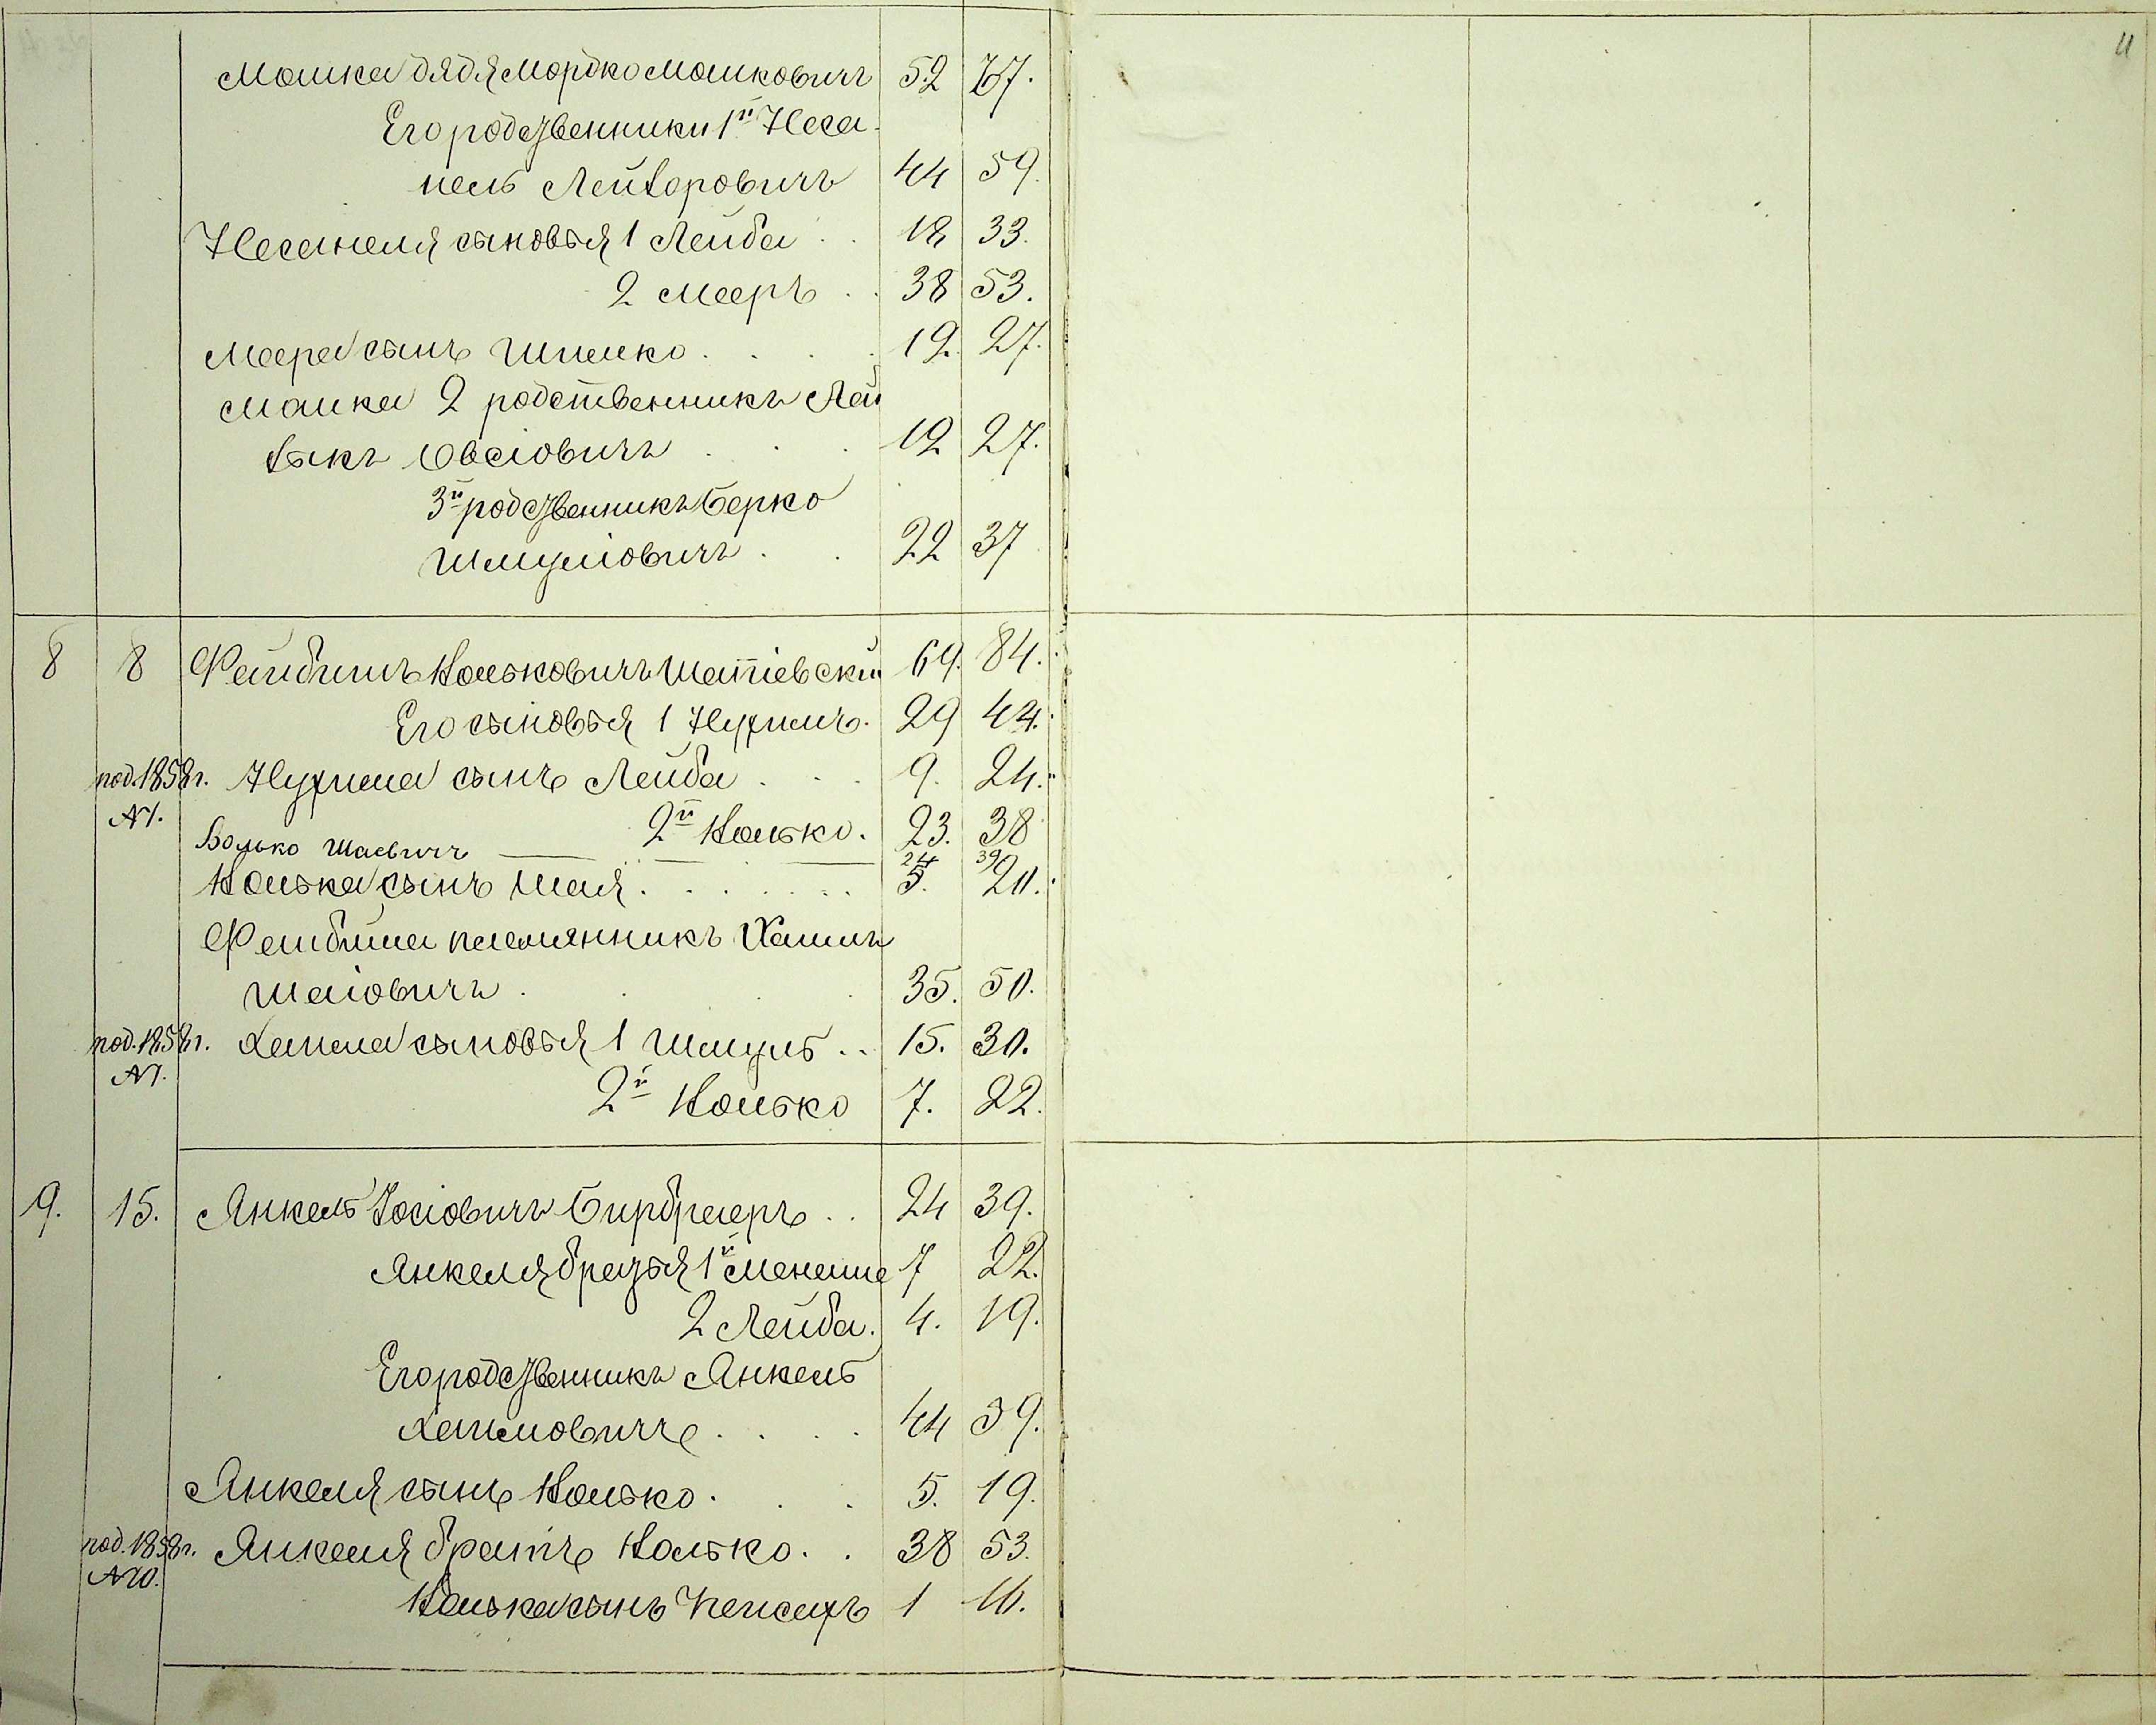 11
Мошка дядя Мордко Мошковичъ 52 67.
Его родственники 1й Неса-
нель Лейзоровичъ 44 59.
Несанеля сыновья 1 Лейба . . 18 33.
2 Мееръ . . 38 53.
Меера сынъ Шмелко . . . . 12. 27.
Мошка 2 родственникъ Лей
зыкъ Овсіовичъ . . . 12 27.
3й родственникъ Берко
Шмуліовичъ . . 22 37
8 8 Файбишъ Вольковичъ Шатіевскій 69. 84.
Его сыновья 1 Нухимъ. 29 44.
под. 1858 г. Нухима сынъ Лейба . . . 9. 24.
№ 1. 2й Волько. 23. 38
Волько Шаевичъ 24 39
Волька сынъ Шая . . . . . . 5. 20.
Файбиша племянникъ Хаимъ
Шаіовичъ . . . . 35. 50.
под. 1858 г. Хаима сыновья 1 Шмуль . . 15. 30.
№ 1.
2й Волько 7. 22.
9. 15. Янкель Іосіовичъ Бирбраеръ . . 24 39.
Янкеля братья 1й Менаше 7 22.
2 Лейба. 4. 19.
Его родственникъ Янкель
Хаимовичъ . . . . 44 59.
Янкеля сынъ Волько . . . 5. 19.
под. 1858 г. Янкеля братъ Волько . . 38 53.
№ 10.
Волька сынъ Пейсахъ 1 16.